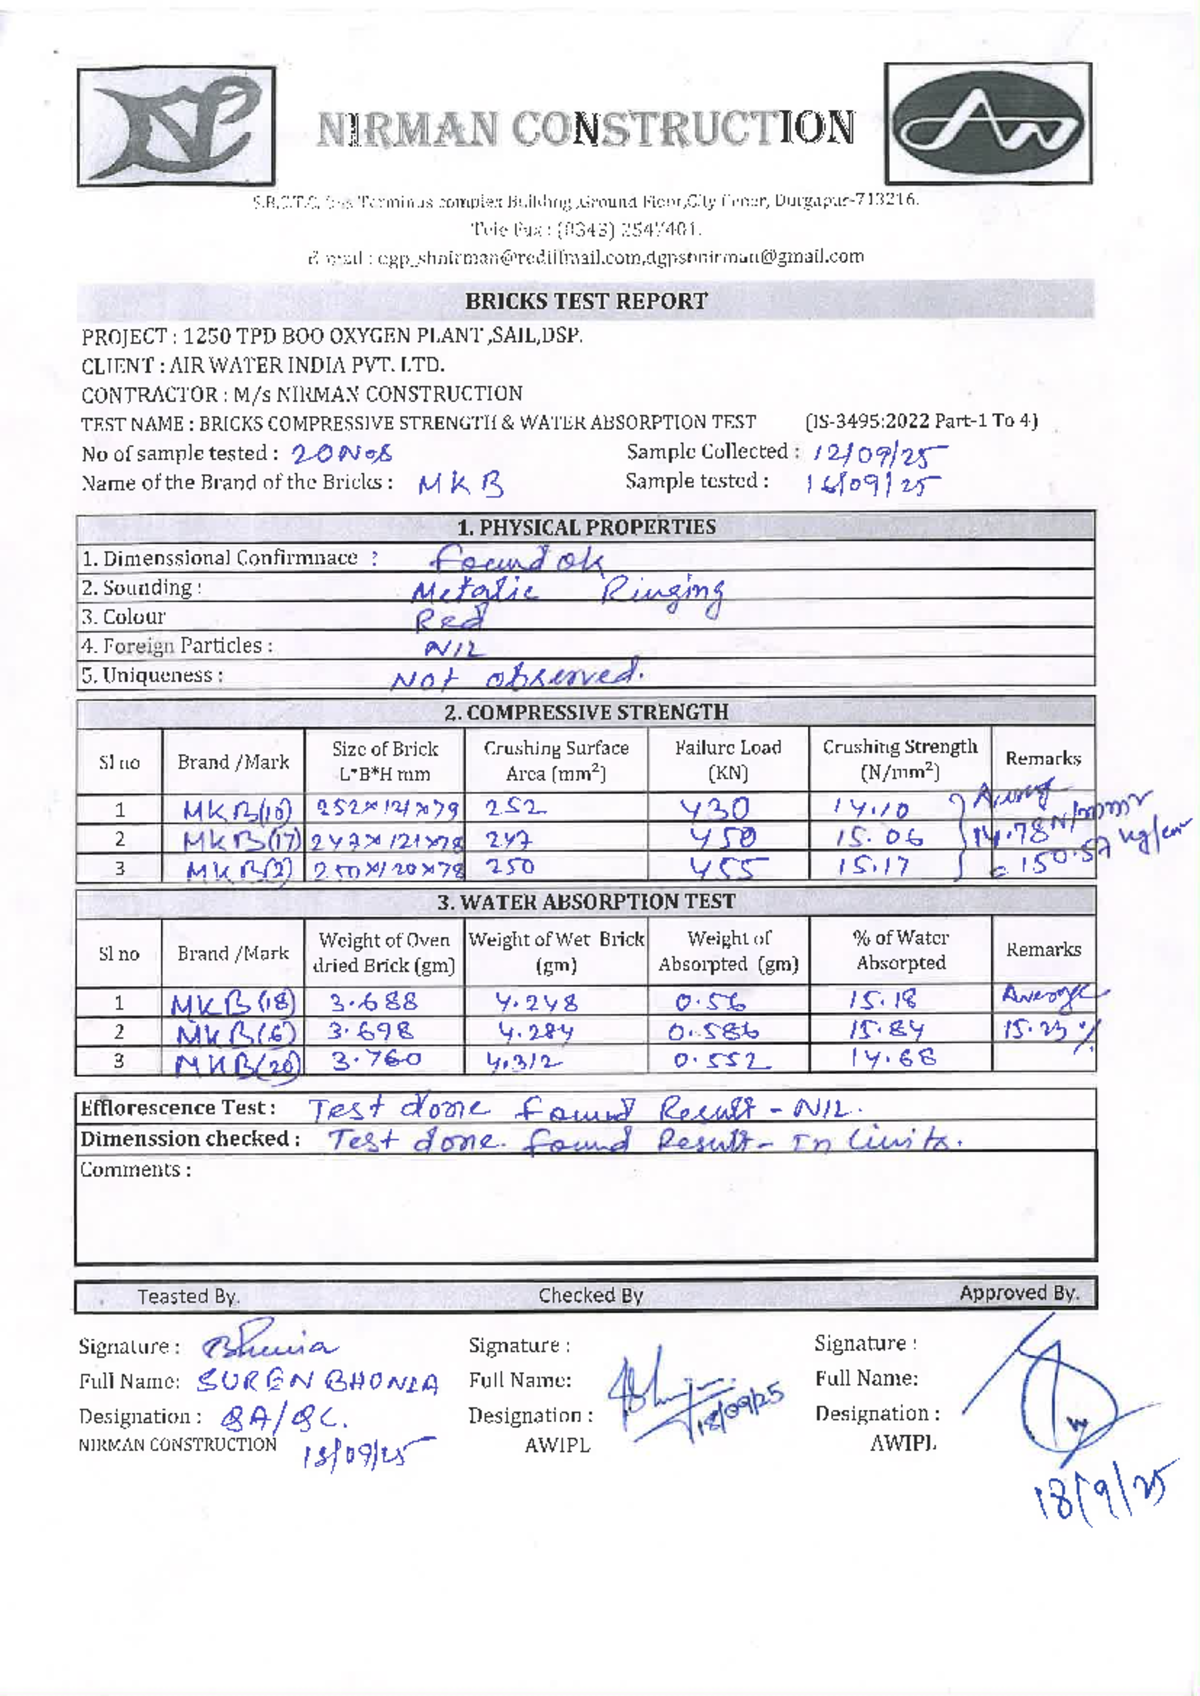 NIRMAN CONSTRUCTION
S.B.S.T.C. Bus Terminus complex Building ,Ground Floor,City Center, Durgapur-713216.
Tele Fax : (0343) 2547401.
E-mail : dgp_shnirman@rediffmail.com,dgpshnirman@gmail.com
BRICKS TEST REPORT
PROJECT : 1250 TPD BOO OXYGEN PLANT ,SAIL,DSP.
CLIENT : AIR WATER INDIA PVT. LTD.
CONTRACTOR : M/s NIRMAN CONSTRUCTION
TEST NAME : BRICKS COMPRESSIVE STRENGTH & WATER ABSORPTION TEST (IS-3495:2022 Part-1 To 4)
No of sample tested : 20 Nos Sample Collected : 12/09/25
Name of the Brand of the Bricks : MKB Sample tested : 16/09/25
1. PHYSICAL PROPERTIES
1. Dimenssional Confirmnace : Found ok
2. Sounding : Metalic Ringing
3. Colour Red
4. Foreign Particles : NIL
5. Uniqueness : Not observed.
2. COMPRESSIVE STRENGTH
Sl no Brand /Mark Size of Brick L*B*H mm Crushing Surface Area (mm²) Failure Load (KN) Crushing Strength (N/mm²) Remarks
1 MKB(10) 252×121×79 252 430 14.10 Average
2 MKB(17) 247×121×78 247 450 15.06 14.78 N/mm²
3 MKB(2) 250×120×78 250 455 15.17 150.57 kg/cm
3. WATER ABSORPTION TEST
Sl no Brand /Mark Weight of Oven dried Brick (gm) Weight of Wet Brick (gm) Weight of Absorpted (gm) % of Water Absorpted Remarks
1 MKB(18) 3.688 4.248 0.56 15.18 Average
2 MKB(6) 3.698 4.284 0.586 15.84 15.23 %
3 MKB(20) 3.760 4.312 0.552 14.68
Efflorescence Test : Test done found Result - NIL.
Dimenssion checked : Test done. found Result - In limits.
Comments :
Teasted By. Checked By Approved By.
Signature : Bhunia Signature : Signature :
Full Name: SUREN BHUNIA Full Name: Full Name:
Designation : QA/QC. Designation : 18/09/25 Designation :
NIRMAN CONSTRUCTION 18/09/25 AWIPL AWIPL
18/9/25